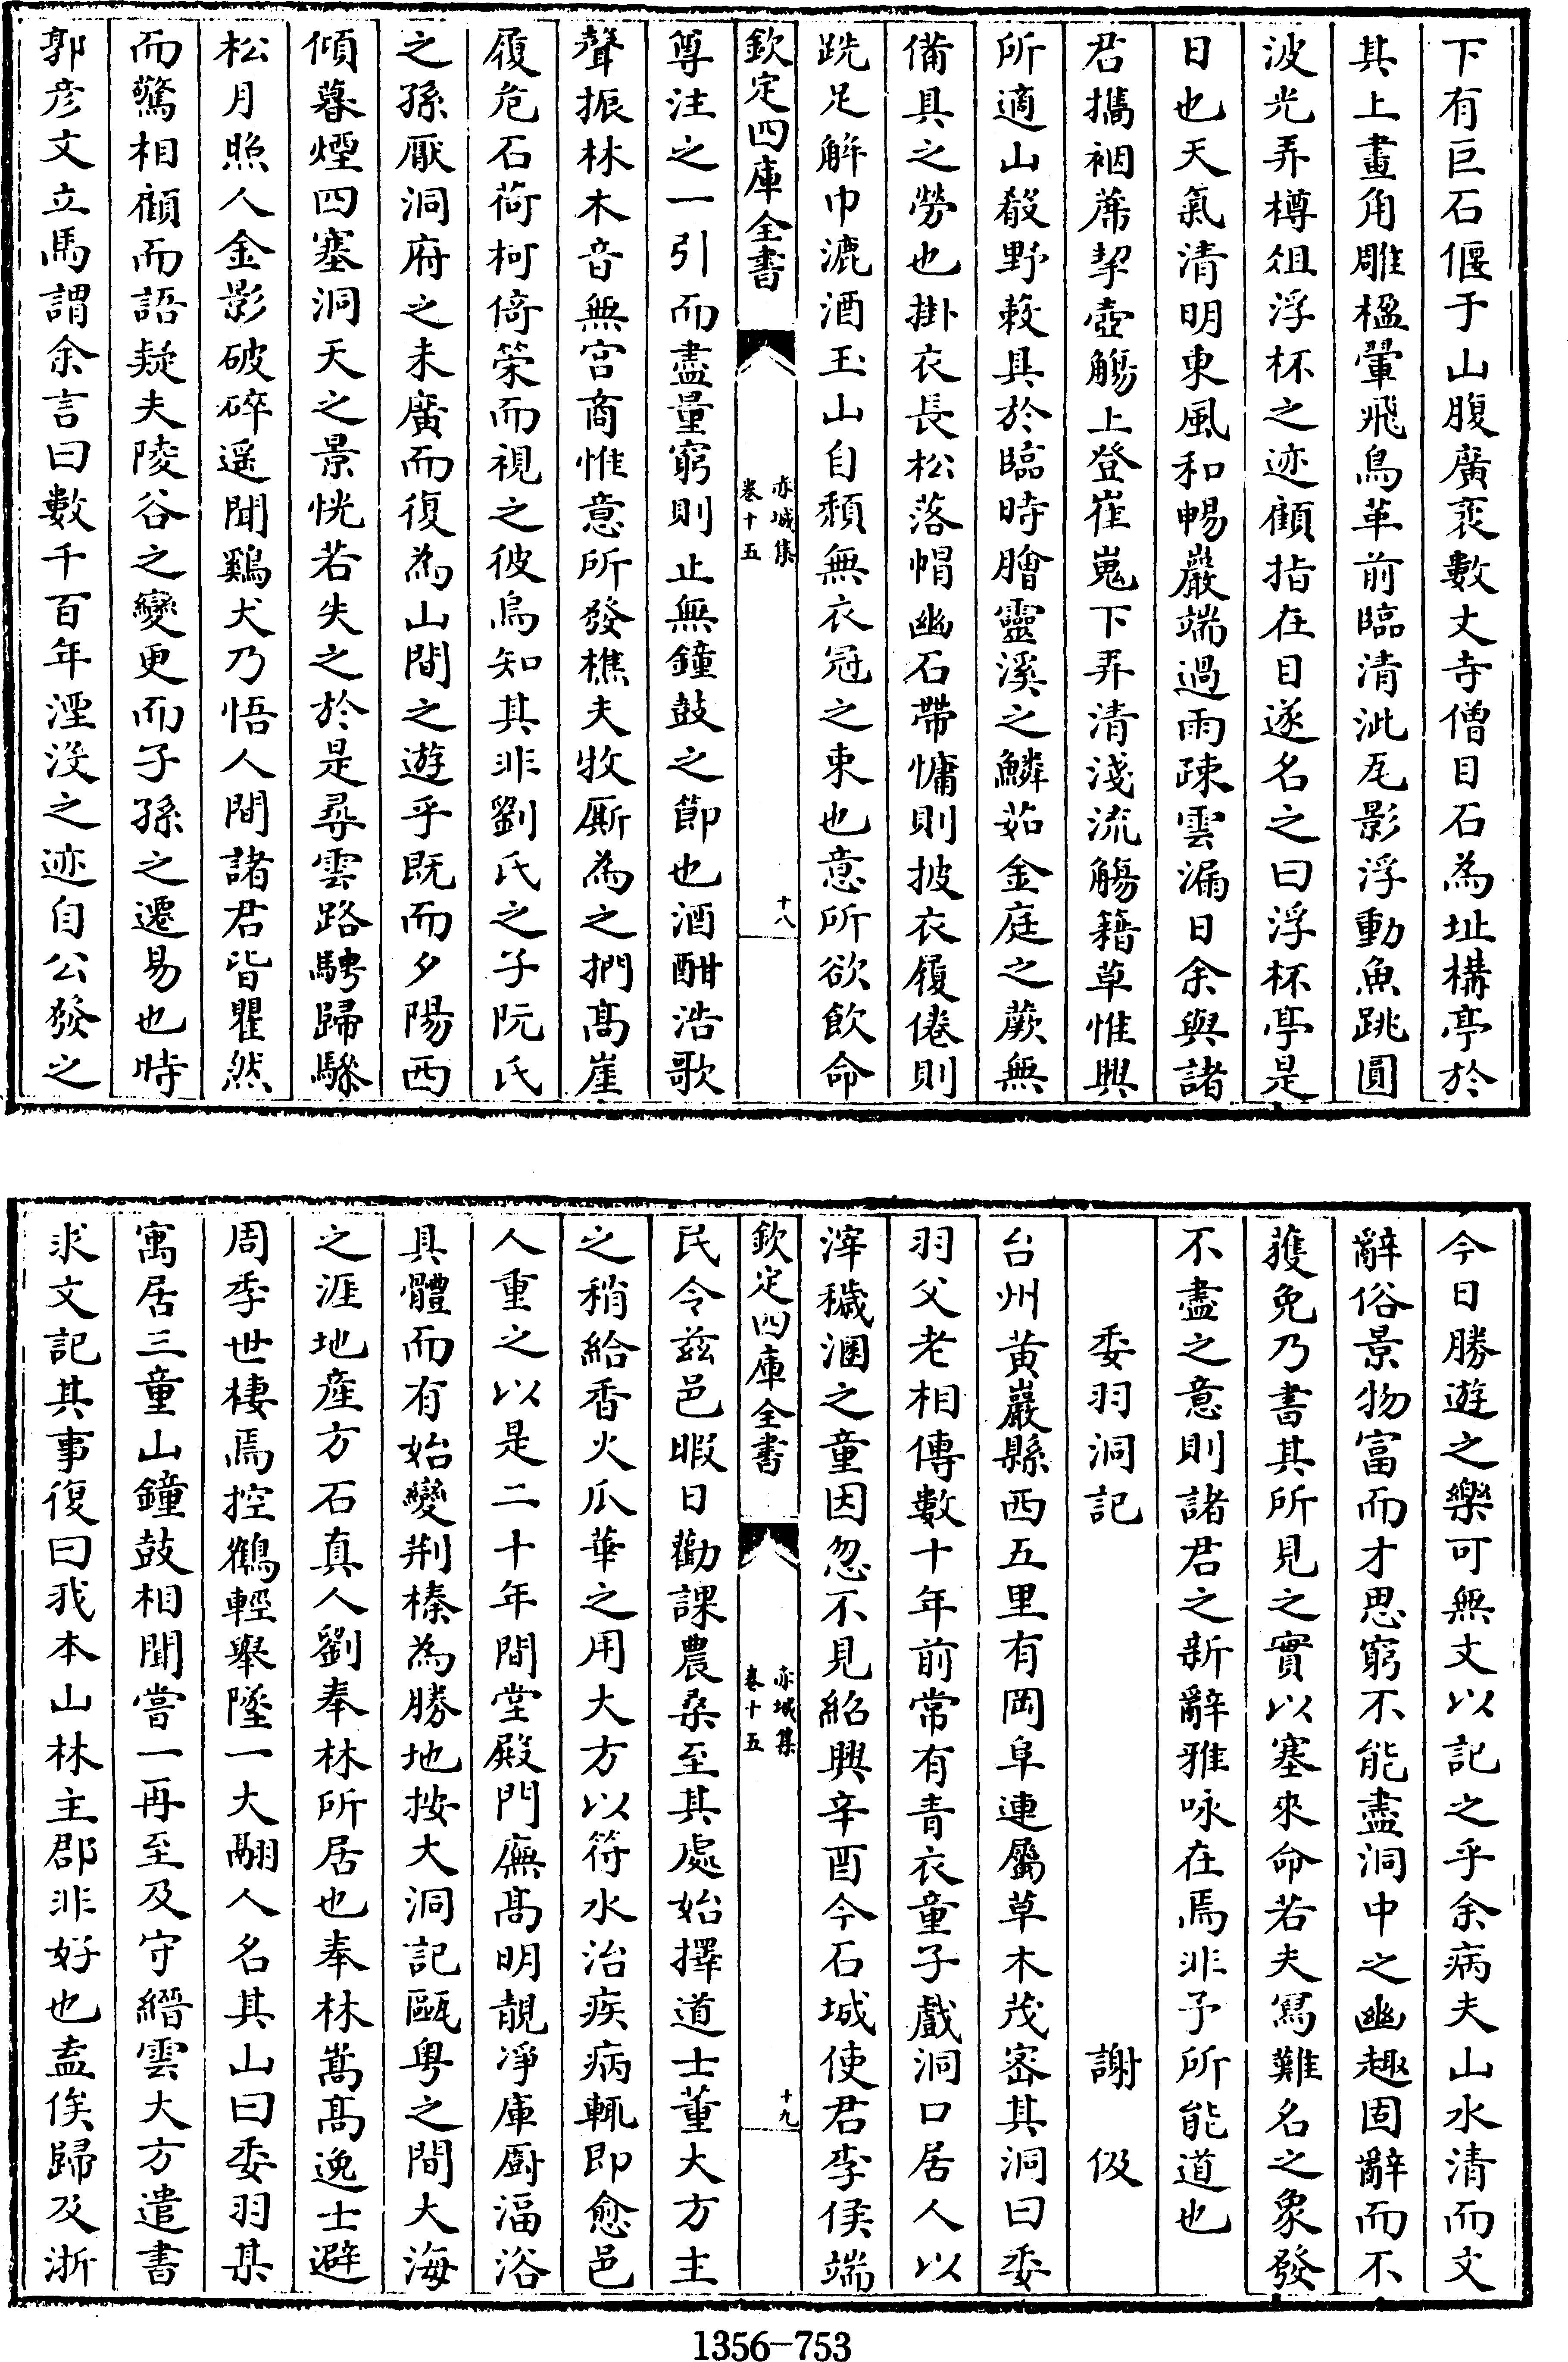 下有巨石偃于山腹廣袤數丈寺僧目石為址構亭於
其上畫角雕楹翬飛鳥革前臨清泚瓦影浮動魚跳圓
波光弄樽俎浮杯之迹顧指在目遂名之曰浮杯亭是
日也天氣清明東風和暢巖端過雨疎雲漏日余與諸
君攜裀蓆挈壺觴上登崔嵬下弄清淺流觴籍草惟興
所適山殽野蔌具於臨時膾靈溪之鱗茹金庭之蕨無
備具之勞也掛衣長松落帽幽石帶慵則披衣履倦則
跣足解巾漉酒玉山自頹無衣冠之束也意所欲飲命
欽定四庫全書
赤城集
卷十五
十八
尊注之一引而盡量窮則止無鐘鼓之節也酒酣浩歌
聲振林木音無宮商惟意所發樵夫牧厮為之捫高崖
履危石荷柯倚䇿而視之彼烏知其非劉氏之子阮氏
之孫厭洞府之未廣而復為山間之遊乎既而夕陽西
傾暮煙四塞洞天之景恍若失之於是尋雲路騁歸驂
松月照人金影破碎遥聞鷄犬乃悟人間諸君皆瞿然
而驚相顧而語疑夫陵谷之變更而子孫之遷易也時
郭彦文立馬謂余言曰數千百年湮沒之迹自公發之
今日勝遊之樂可無文以記之乎余病夫山水清而文
辭俗景物富而才思窮不能盡洞中之幽趣固辭而不
獲免乃書其所見之實以塞來命若夫寫難名之象發
不盡之意則諸君之新辭雅咏在焉非予所能道也
委羽洞記 謝伋
台州黄巖縣西五里有岡阜連屬草木茂宻其洞曰委
羽父老相傳數十年前常有青衣童子戲洞口居人以
滓穢溷之童因忽不見紹興辛酉今石城使君李侯端
欽定四庫全書
赤城集
卷十五
十九
民令兹邑暇日勸課農桑至其處始擇道士董大方主
之稍給香火瓜華之用大方以符水治疾病輒即愈邑
人重之以是二十年間堂殿門廡髙明靚淨庫厨湢浴
具體而有始變荆榛為勝地按大洞記甌粤之間大海
之涯地産方石真人劉奉林所居也奉林嵩髙逸士避
周季世棲焉控鶴輕舉墜一大翮人名其山曰委羽某
寓居三童山鐘鼓相聞嘗一再至及守縉雲大方遣書
求文記其事復曰我本山林主郡非好也盍俟歸及浙
1356-753